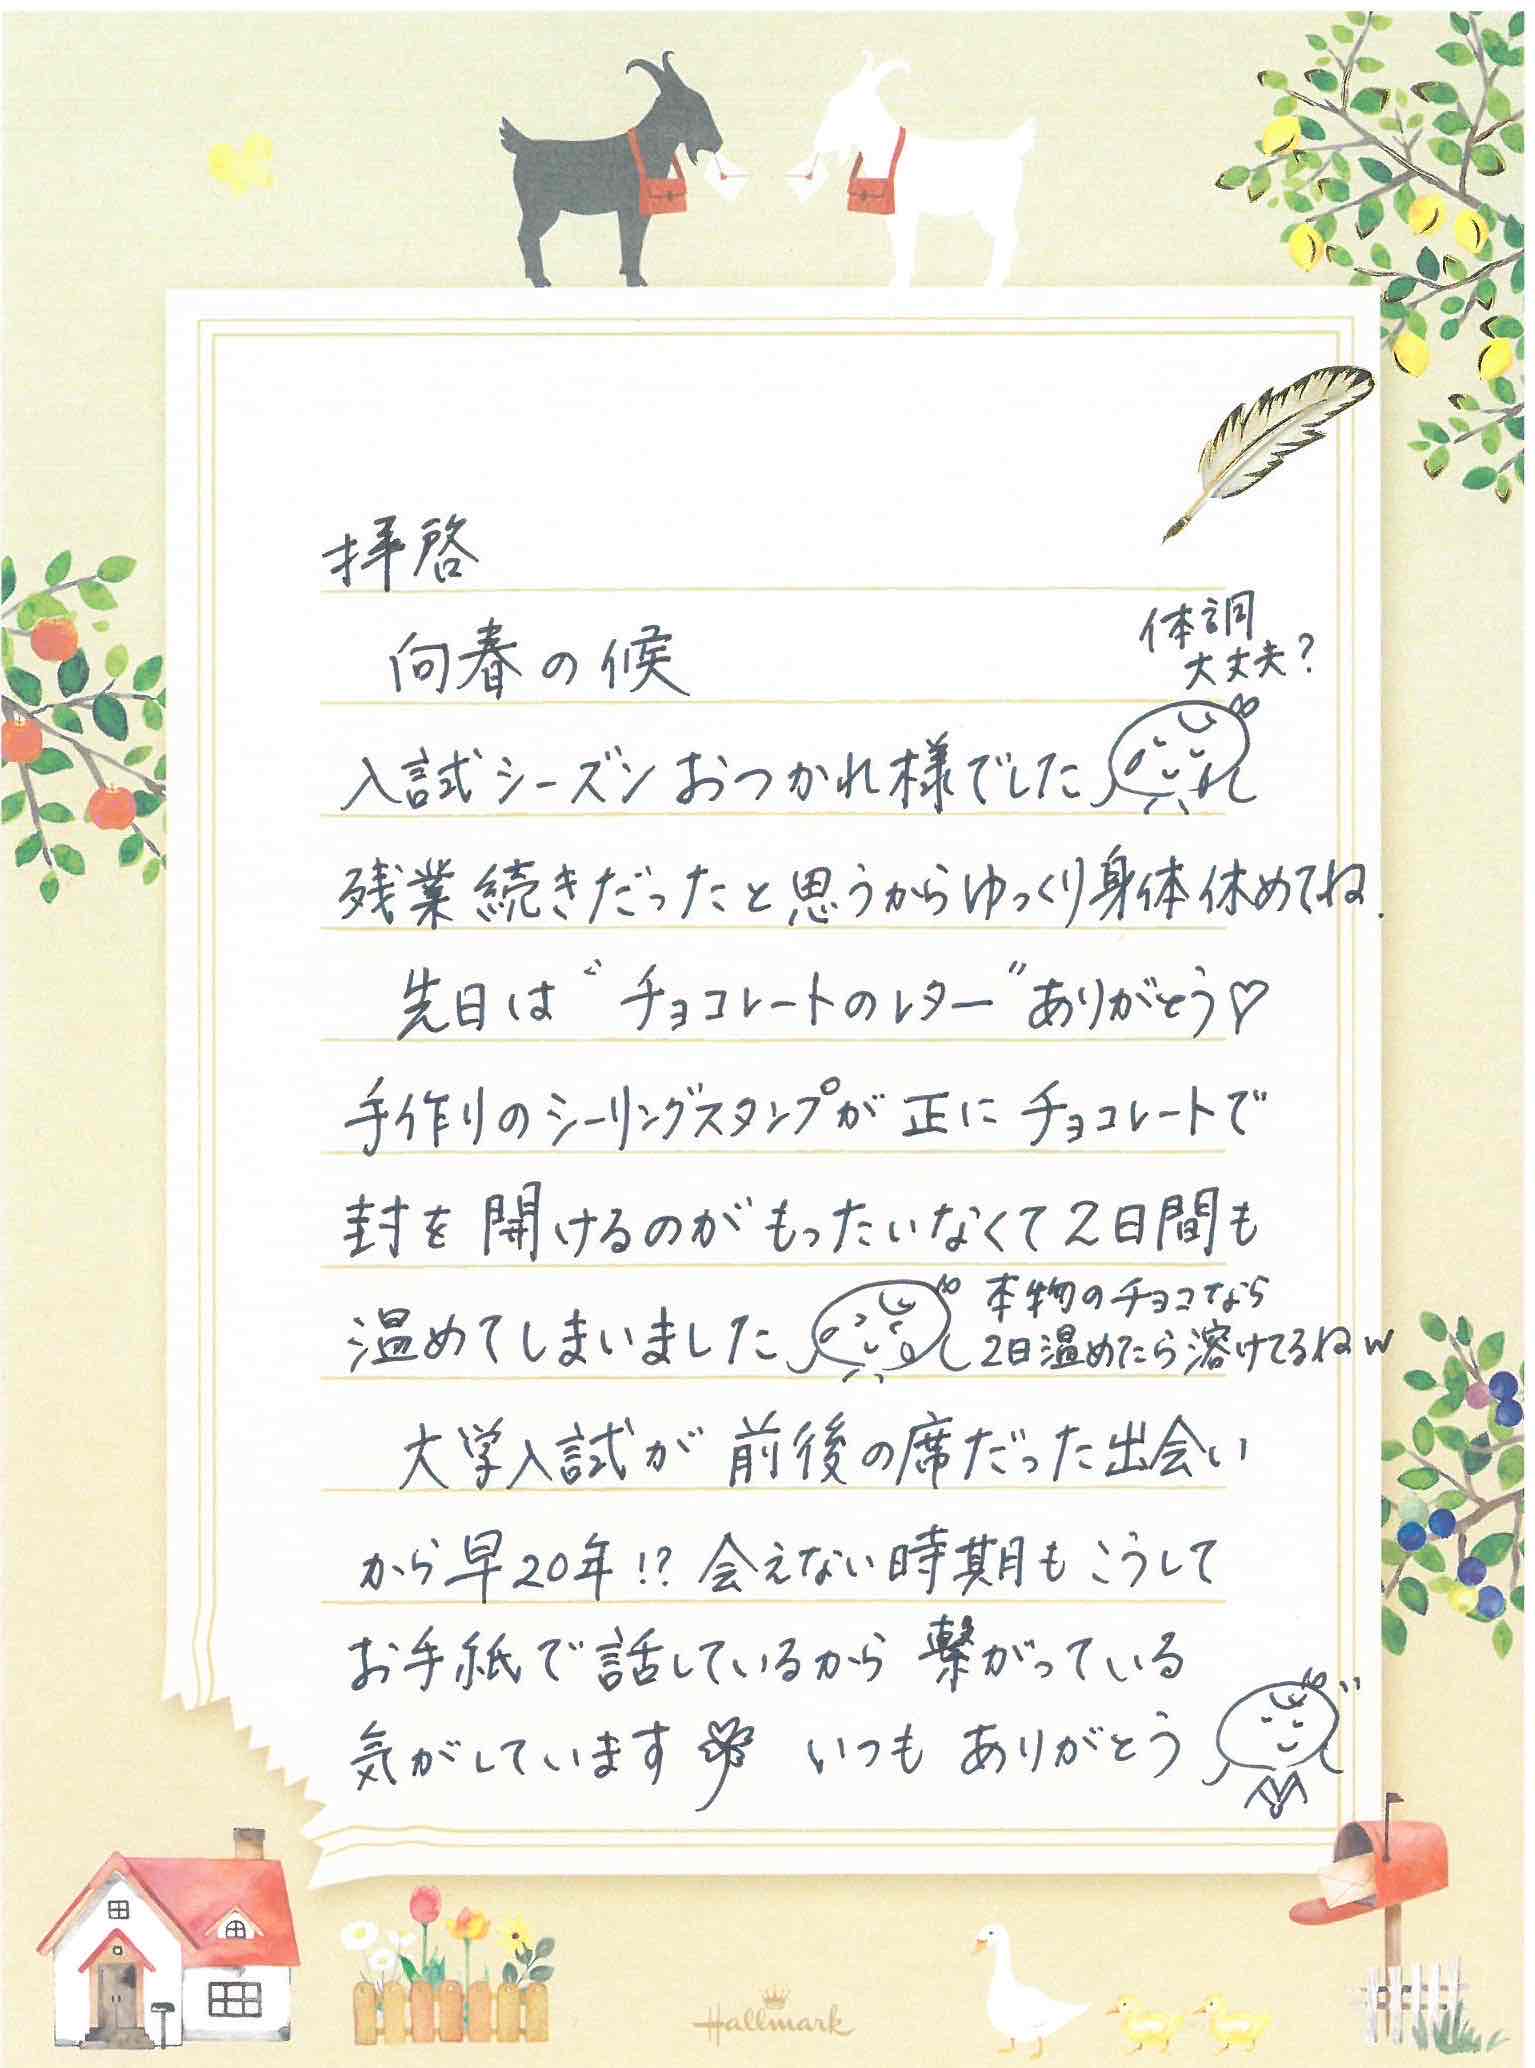 拝啓
向春の候
体調
大丈夫?
入試シーズンおつかれ様でした
残業続きだったと思うからゆっくり身体休めてね.
先日は〝チョコレートのレター〟ありがとう♡
手作りのシーリングスタンプが正にチョコレートで
封を開けるのがもったいなくて2日間も
温めてしまいました
本物のチョコなら
2日温めたら溶けてるねw
大学入試が前後の席だった出会い
から早20年!?会えない時期もこうして
お手紙で話しているから繋がっている
気がしています いつもありがとう
Hallmark